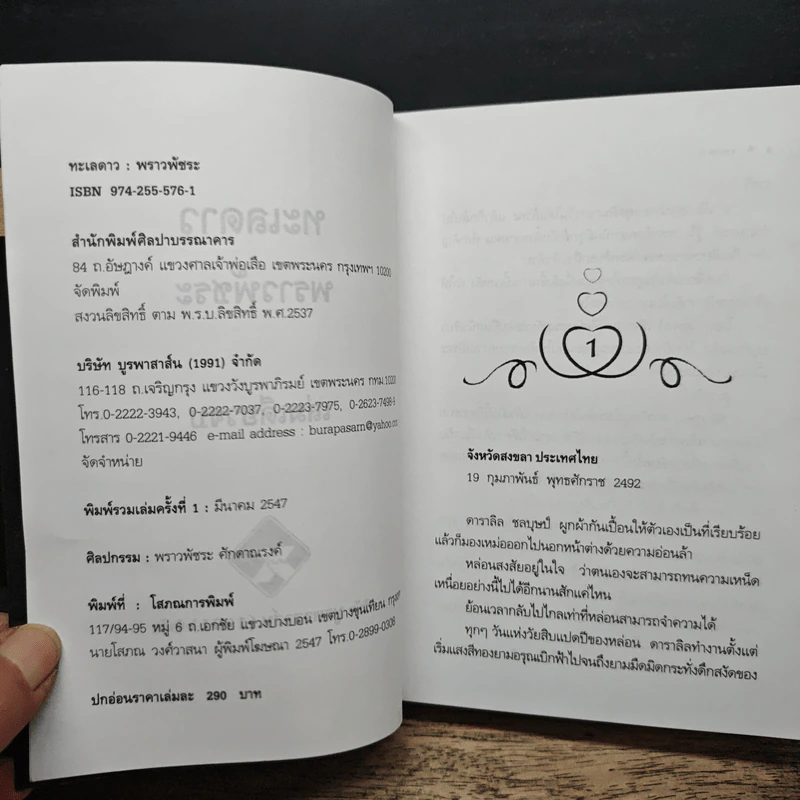 ทะเลดาว : พราวพัชระ
ISBN 974-255-576-1
สำนักพิมพ์ศิลปาบรรณาคาร
84 ถ.อัษฎางค์ แขวงศาลเจ้าพ่อเสือ เขตพระนคร กรุงเทพฯ 10200
จัดพิมพ์
สงวนลิขสิทธิ์ ตาม พ.ร.บ.ลิขสิทธิ์ พ.ศ.2537
บริษัท บูรพาสาส์น (1991) จำกัด
116-118 ถ.เจริญกรุง แขวงวังบูรพาภิรมย์ เขตพระนคร กทม.10200
โทร.0-2222-3943, 0-2222-7037, 0-2223-7975, 0-2623-7498-9
โทรสาร 0-2221-9446 e-mail address : burapasarn@yahoo.com
จัดจำหน่าย
พิมพ์รวมเล่มครั้งที่ 1 : มีนาคม 2547
ศิลปกรรม : พราวพัชระ ศักดาณรงค์
พิมพ์ที่ : โสภณการพิมพ์
117/94-95 หมู่ 6 ถ.เอกชัย แขวงบางบอน เขตบางขุนเทียน
นายโสภณ วงศ์วาสนา ผู้พิมพ์โฆษณา 2547 โทร.0-2899-0308
ปกอ่อนราคาเล่มละ 290 บาท
1
จังหวัดสงขลา ประเทศไทย
19 กุมภาพันธ์ พุทธศักราช 2492
ดาราลิล ชลบุษป์ ผูกผ้ากันเปื้อนให้ตัวเองเป็นที่เรียบร้อย
แล้วก็มองเหม่อออกไปนอกหน้าต่างด้วยความอ่อนล้า
หล่อนสงสัยอยู่ในใจ ว่าตนเองจะสามารถทนความเหน็ด
เหนื่อยอย่างนี้ไปได้อีกนานสักแค่ไหน
ย้อนเวลากลับไปไกลเท่าที่หล่อนสามารถจำความได้
ทุกๆ วันแห่งวัยสิบแปดปีของหล่อน ดาราลิลทำงานตั้งแต่
เริ่มแสงสีทองยามอรุณเบิกฟ้าไปจนถึงยามมืดมิดกระทั่งดึกสงัดของ